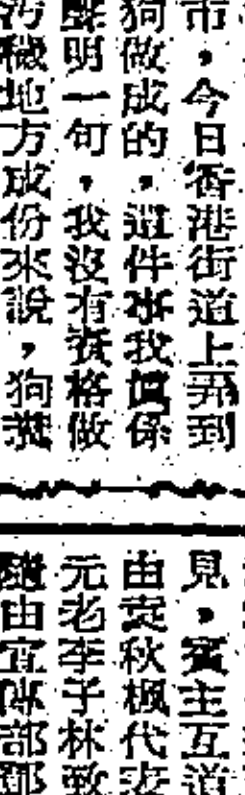 市，今日香港街道上弄到
狗做成的，這件事我與係
聲明一句，我沒有資格做
污穢地方成份來說，狗糞
見，賓主互道
由袁秋楓代表
元老李子林致
由宣傳部鄧